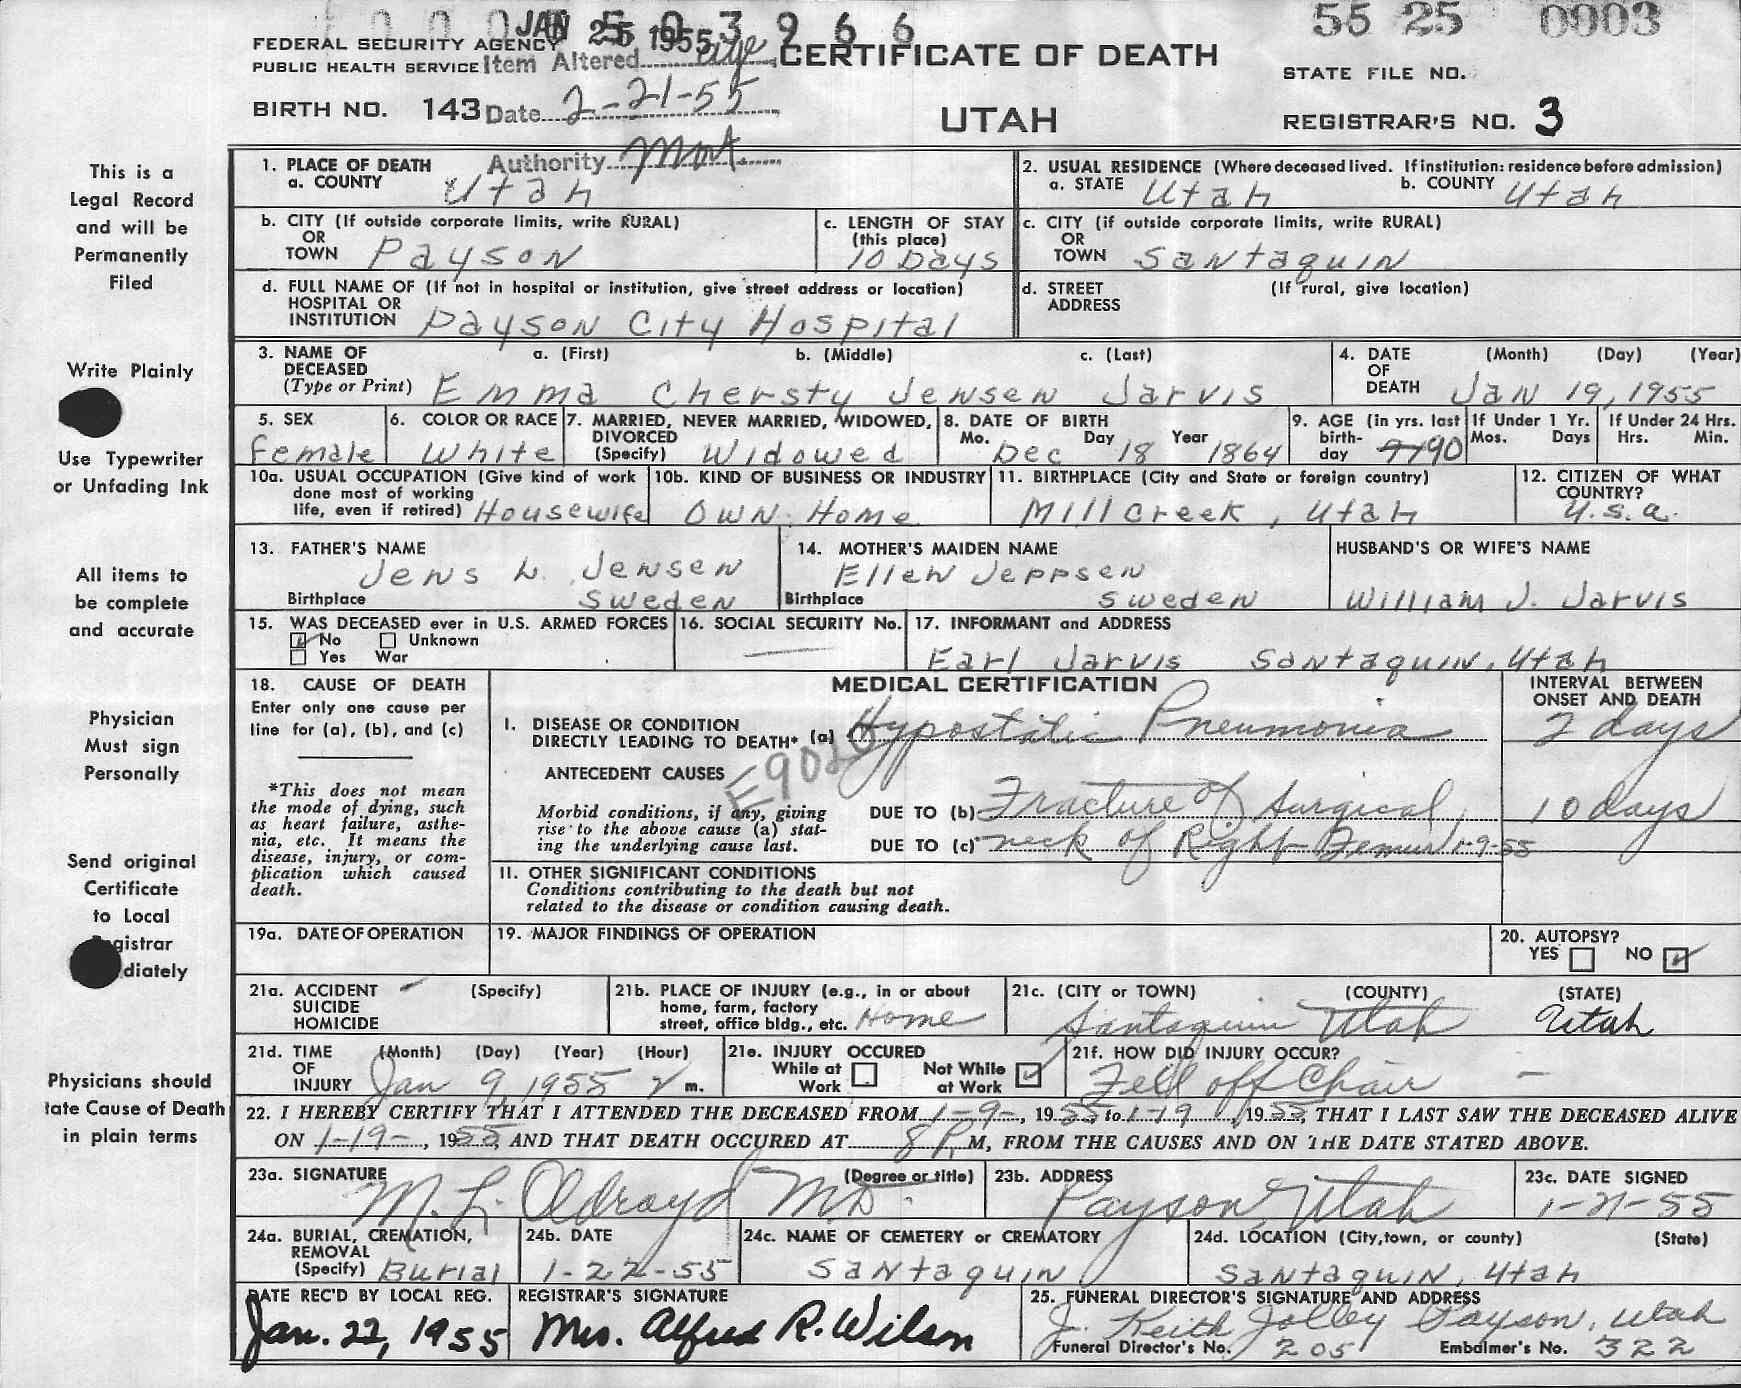 JAN 25 1955
0 0 0 5 0 3 9 6 6
55 25 0003
FEDERAL SECURITY AGENCY
PUBLIC HEALTH SERVICE Item Altered age CERTIFICATE OF DEATH
STATE FILE NO.
BIRTH NO. 143 Date 2-21-55 UTAH REGISTRAR'S NO. 3
Authority
This is a
Legal Record
and will be
Permanently
Filed
Write Plainly
Use Typewriter
or Unfading Ink
All items to
be complete
and accurate
Physician
Must sign
Personally
Send original
Certificate
to Local
gistrar
diately
Physicians should
tate Cause of Death
in plain terms
1. PLACE OF DEATH
a. COUNTY Utah
2. USUAL RESIDENCE (Where deceased lived. If institution: residence before admission)
a. STATE Utah b. COUNTY Utah
b. CITY (If outside corporate limits, write RURAL)
OR
TOWN Payson
c. LENGTH OF STAY
(this place)
10 Days
c. CITY (if outside corporate limits, write RURAL)
OR
TOWN Santaquin
d. FULL NAME OF (If not in hospital or institution, give street address or location)
HOSPITAL OR
INSTITUTION Payson City Hospital
d. STREET (If rural, give location)
ADDRESS
3. NAME OF a. (First) b. (Middle) c. (Last)
DECEASED
(Type or Print) Emma Chersty Jensen Jarvis
4. DATE (Month) (Day) (Year)
OF
DEATH Jan 19, 1955
5. SEX
Female
6. COLOR OR RACE
White
7. MARRIED, NEVER MARRIED, WIDOWED,
DIVORCED
(Specify) Widowed
8. DATE OF BIRTH
Mo. Day Year
Dec 18 1864
9. AGE (in yrs. last
birth-
day 90
If Under 1 Yr.
Mos. Days
If Under 24 Hrs.
Hrs. Min.
10a. USUAL OCCUPATION (Give kind of work
done most of working
life, even if retired) Housewife
10b. KIND OF BUSINESS OR INDUSTRY
Own Home
11. BIRTHPLACE (City and State or foreign country)
Millcreek, Utah
12. CITIZEN OF WHAT
COUNTRY?
U.S.A.
13. FATHER'S NAME
Jens L. Jensen
Birthplace Sweden
14. MOTHER'S MAIDEN NAME
Ellen Jeppsen
Birthplace Sweden
HUSBAND'S OR WIFE'S NAME
William J. Jarvis
15. WAS DECEASED ever in U.S. ARMED FORCES
No Unknown
Yes War
16. SOCIAL SECURITY No.
17. INFORMANT and ADDRESS
Earl Jarvis Santaquin, Utah
18. CAUSE OF DEATH
Enter only one cause per
line for (a), (b), and (c)
*This does not mean
the mode of dying, such
as heart failure, asthe-
nia, etc. It means the
disease, injury, or com-
plication which caused
death.
MEDICAL CERTIFICATION
INTERVAL BETWEEN
ONSET AND DEATH
I. DISEASE OR CONDITION
DIRECTLY LEADING TO DEATH* (a) Hypostatic Pneumonia 2 days
ANTECEDENT CAUSES
Morbid conditions, if any, giving
rise to the above cause (a) stat-
ing the underlying cause last.
DUE TO (b) Fracture of Surgical 10 days
DUE TO (c) neck of Right Femur 1-9-55
II. OTHER SIGNIFICANT CONDITIONS
Conditions contributing to the death but not
related to the disease or condition causing death.
19a. DATE OF OPERATION
19. MAJOR FINDINGS OF OPERATION
20. AUTOPSY?
YES NO
21a. ACCIDENT (Specify)
SUICIDE
HOMICIDE
21b. PLACE OF INJURY (e.g., in or about
home, farm, factory
street, office bldg., etc. Home
21c. (CITY or TOWN) (COUNTY) (STATE)
Santaquin Utah Utah
21d. TIME (Month) (Day) (Year) (Hour)
OF
INJURY Jan 9, 1955 2 m.
21e. INJURY OCCURED
While at Not While
Work at Work
21f. HOW DID INJURY OCCUR?
Fell off Chair
22. I HEREBY CERTIFY THAT I ATTENDED THE DECEASED FROM 1-9-, 1955 to 1-19, 1955, THAT I LAST SAW THE DECEASED ALIVE
ON 1-19-, 1955, AND THAT DEATH OCCURED AT 8 P. M, FROM THE CAUSES AND ON THE DATE STATED ABOVE.
23a. SIGNATURE (Degree or title)
M. L. Oldroyd M.D.
23b. ADDRESS
Payson, Utah
23c. DATE SIGNED
1-21-55
24a. BURIAL, CREMATION,
REMOVAL
(Specify) Burial
24b. DATE
1-22-55
24c. NAME OF CEMETERY or CREMATORY
Santaquin
24d. LOCATION (City, town, or county) (State)
Santaquin, Utah
DATE REC'D BY LOCAL REG.
Jan. 22, 1955
REGISTRAR'S SIGNATURE
Mrs. Alfred R. Wilson
25. FUNERAL DIRECTOR'S SIGNATURE AND ADDRESS
J. Keith Jolley Payson, Utah
Funeral Director's No. 205 Embalmer's No. 322